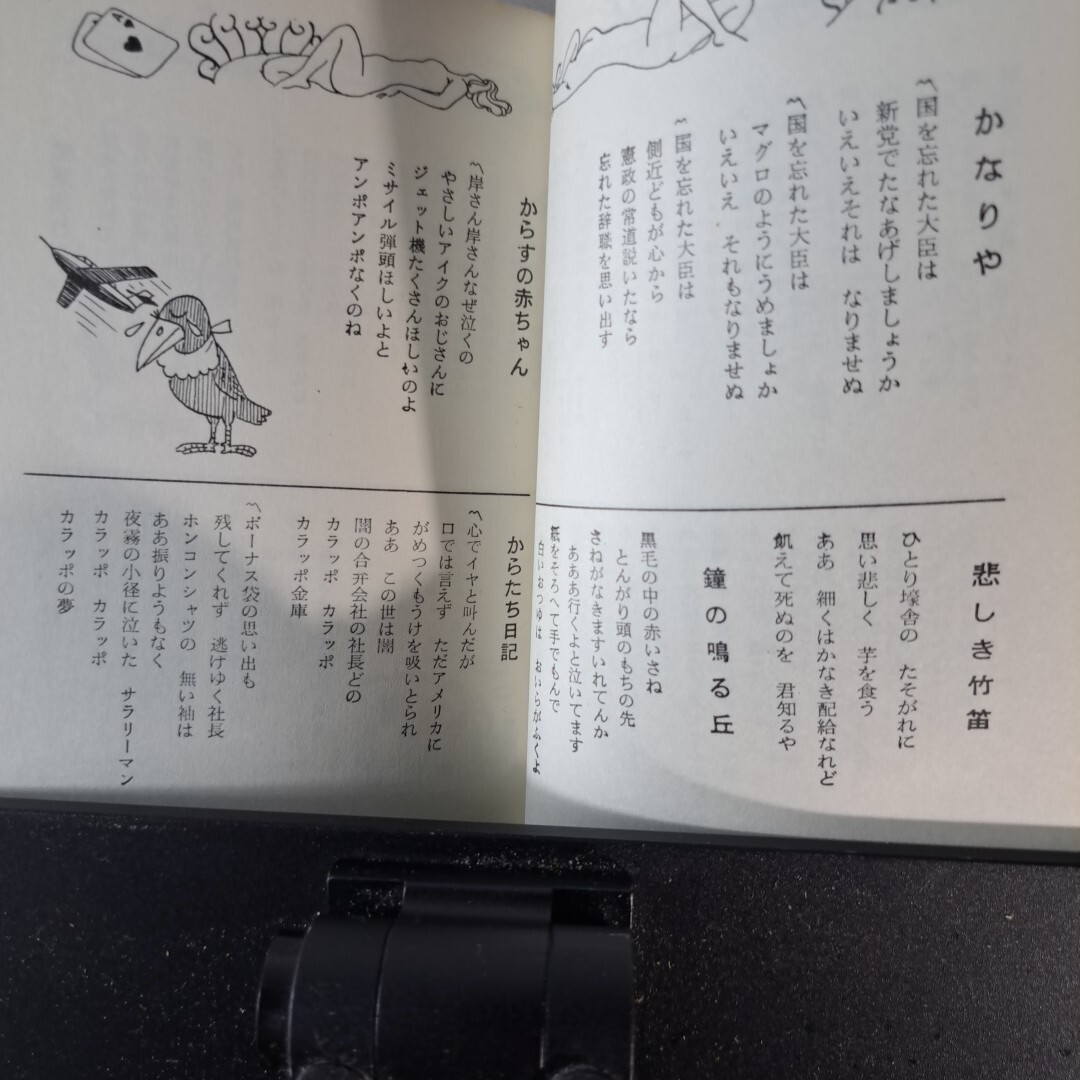 かなりや
〽国を忘れた大臣は
新党でたなあげしましょうか
いえいえそれは　なりませぬ
〽国を忘れた大臣は
マグロのようにうめましょか
いえいえ　それもなりませぬ
〽国を忘れた大臣は
側近どもが心から
憲政の常道説いたなら
忘れた辞職を思い出す
悲しき竹笛
ひとり壕舎の　たそがれに
思い悲しく　芋を食う
ああ　細くはかなき配給なれど
飢えて死ぬのを　君知るや
鐘の鳴る丘
黒毛の中の赤いさね
とんがり頭のもちの先
さねがなきますいれてんか
あああ行くよと泣いてます
紙をそろへて手でもんで
白いおつゆは　おいらがふくよ
からすの赤ちゃん
〽岸さん岸さんなぜ泣くの
やさしいアイクのおじさんに
ジェット機たくさんほしいのよ
ミサイル弾頭ほしいよと
アンポアンポなくのね
からたち日記
〽心でイヤと叫んだが
口では言えず　ただアメリカに
がめつくもうけを吸いとられ
ああ　この世は闇
闇の合弁会社の社長どの
カラッポ　カラッポ
カラッポ金庫
〽ボーナス袋の思い出も
残してくれず　逃けゆく社長
ホンコンシャツの　無い袖は
ああ振りようもなく
夜霧の小径に泣いた　サラリーマン
カラッポ　カラッポ
カラッポの夢